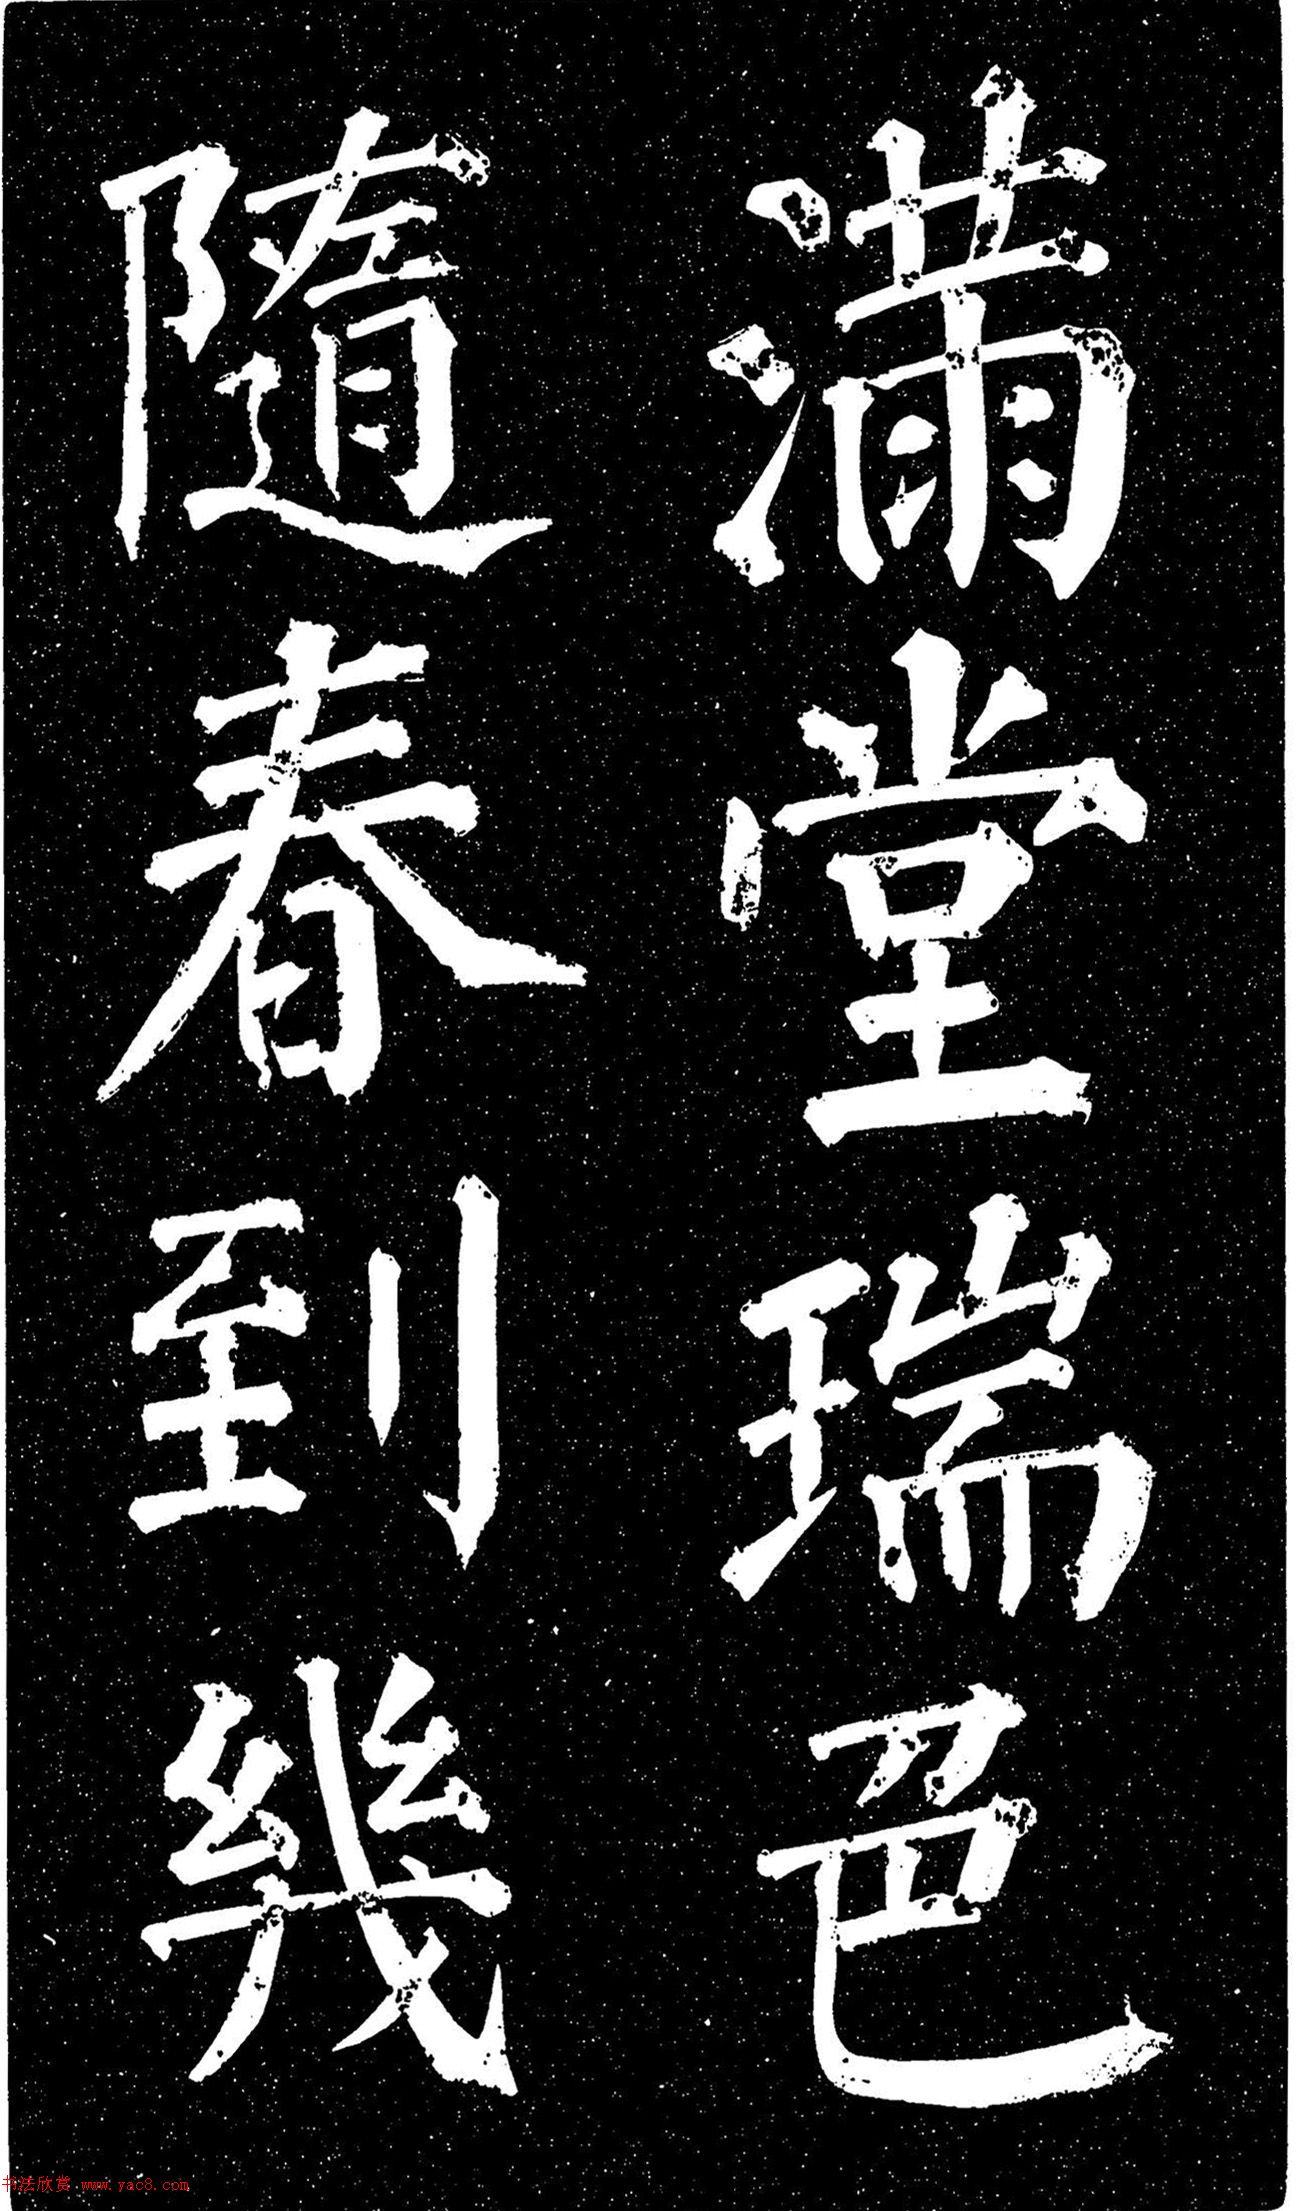 滿堂瑞色
隨春到幾
书法欣赏 www.yac8.com